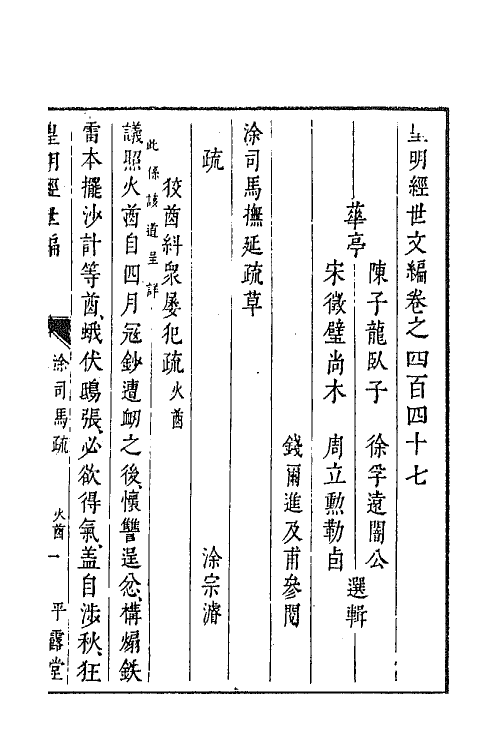 皇明經世文編卷之四百四十七
華亭
陳子龍臥子 徐孚遠闇公
宋徵璧尚木 周立勲勒卣
選輯
錢爾進及甫參閱
涂司馬撫延疏草
疏
涂宗濬
狡酋糾衆屡犯疏 火酋
此係該道呈詳
議照火酋自四月冦鈔遭衂之後、懷讐逞忿、構煽鉄
雷本擺沙計等酋、蛾伏鴟張、必欲得氣、盖自涉秋、狂
皇明經世編 涂司馬疏 火酋 一 平露堂